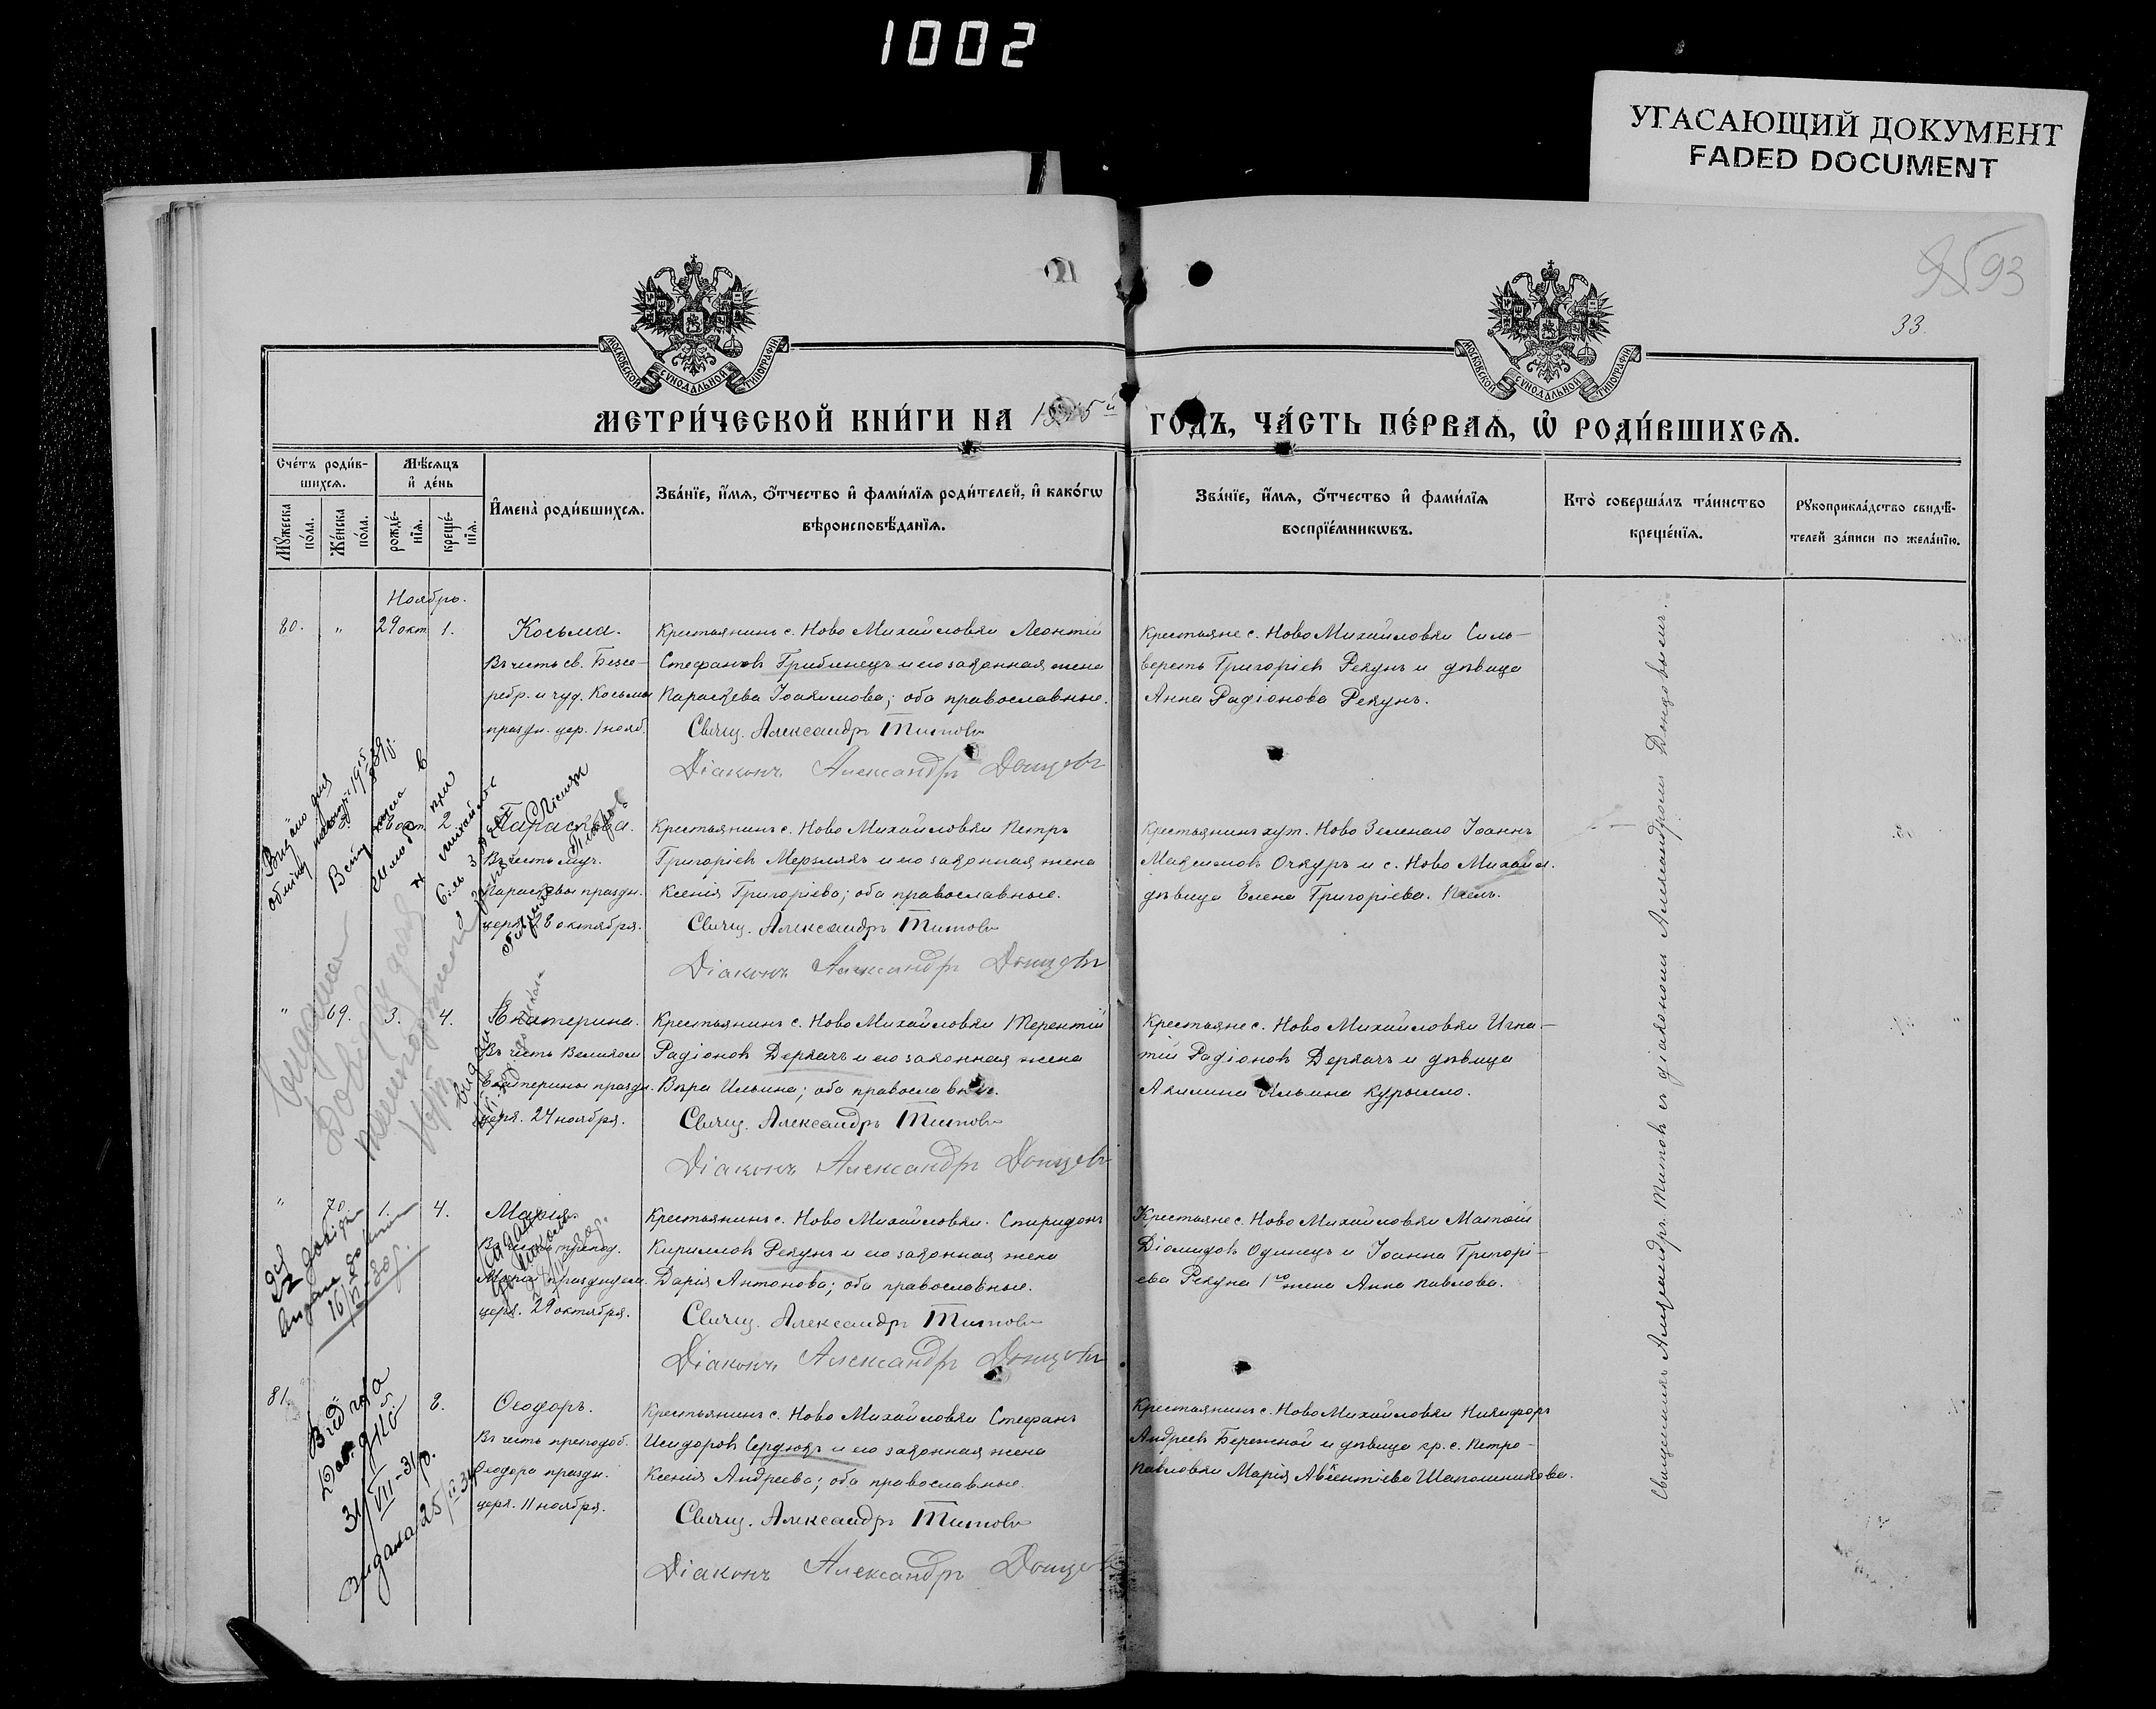 1002
УГАСАЮЩИЙ ДОКУМЕНТ
FADED DOCUMENT
93
33.
МОСКОВСКОЙ СѴНОДАЛЬНОЙ ТИПОГРАФІИ
МОСКОВСКОЙ СѴНОДАЛЬНОЙ ТИПОГРАФІИ
МЕТРИ́ЧЕСКОЙ КНИ́ГИ НА 1915й ГОДЪ, ЧА́СТЬ ПЕ́РВАѦ, Ѽ РОДИ́ВШИХСѦ.
Сче́тъ роди́в-
шихсѧ.
Мѣ́сѧцъ
и҆ де́нь
Мꙋ́жеска по́ла.
Же́нска по́ла.
рожде́-
нїѧ.
креще́-
нїѧ.
И҆мена̀ роди́вшихсѧ.
Зва́нїе, и҆́мѧ, ѻ҆́тчество и҆ фами́лїѧ роди́телей, и҆ како́гѡ
вѣроисповѣ́данїѧ.
Зва́нїе, и҆́мѧ, ѻ҆́тчество и҆ фами́лїѧ
воспрїе́мникѡвъ.
Кто̀ соверша́лъ та́инство
креще́нїѧ.
Рꙋкоприкла́дство свидѣ́-
телей за́писи по жела́нїю.
Ноябрь.
80. " 29 окт. 1.
Косьма.
Въ честь св. Безсе-
ребр. и чуд. Косьмы
праздн. цер. 1 нояб.
Крестьянинъ с. Ново Михайловки Леонтій
Стефановъ Грибинецъ и его законная жена
Параскева Іоакимова; оба православные.
Свящ. Александръ Титовъ
Діаконъ Александръ Донцовъ
Крестьяне с. Ново Михайловки Силь-
верстъ Григоріевъ Рекунъ и дѣвица
Анна Радіонова Рекунъ.
2
Параскева.
Въ честь муч.
Параскевы праздн.
церк. 28 октября.
Крестьянинъ с. Ново Михайловки Петръ
Григоріевъ Мерзлякъ и его законная жена
Ксенія Григоріева; оба православные.
Свящ. Александръ Титовъ
Діаконъ Александръ Донцовъ
Крестьянинъ хут. Ново Зеленаго Іоаннъ
Максимовъ Очкуръ и с. Ново Михайл.
дѣвица Елена Григоріева
" 69. 3. 4.
Екатерина.
Въ честь Великом
Екатерины праздн.
церк. 24 ноября.
Крестьянинъ с. Ново Михайловки Терентій
Радіоновъ Деркачъ и его законная жена
Вѣра Ильина; оба православные.
Свящ. Александръ Титовъ
Діаконъ Александръ Донцовъ
Крестьяне с. Ново Михайловки Игна-
тій Радіоновъ Деркачъ и дѣвица
Акилина Ильина Курыло.
" 70. 1. 4.
Марія.
Въ честь препод.
Маріи празднуем.
церк. 29 октября.
Крестьянинъ с. Ново Михайловки Спиридонъ
Кирилловъ Рекунъ и его законная жена
Дарія Антонова; оба православные.
Свящ. Александръ Титовъ
Діаконъ Александръ Донцовъ
Крестьяне с. Ново Михайловки Матѳій
Діомидовъ Одинецъ и Іоанна Григорі-
ева Рекуна 1го жена Анна Павлова.
81. 8.
Ѳеодоръ.
Въ честь преподоб.
Ѳеодора праздн.
церк. 11 ноября.
Крестьянинъ с. Ново Михайловки Стефанъ
Исидоровъ Сердюкъ и его законная жена
Ксенія Андреева; оба православные.
Свящ. Александръ Титовъ
Діаконъ Александръ Донцовъ
Крестьянинъ с. Ново Михайловки Никифоръ
Андреевъ Бережной и дѣвица кр. с. Петро-
павловки Марія Авксентіева Шапошникова.
Священникъ Александръ Титовъ съ діакономъ Александромъ Донцовымъ.
Видана
16/VI-30р.
31/VIII-31р.
Видана 25/